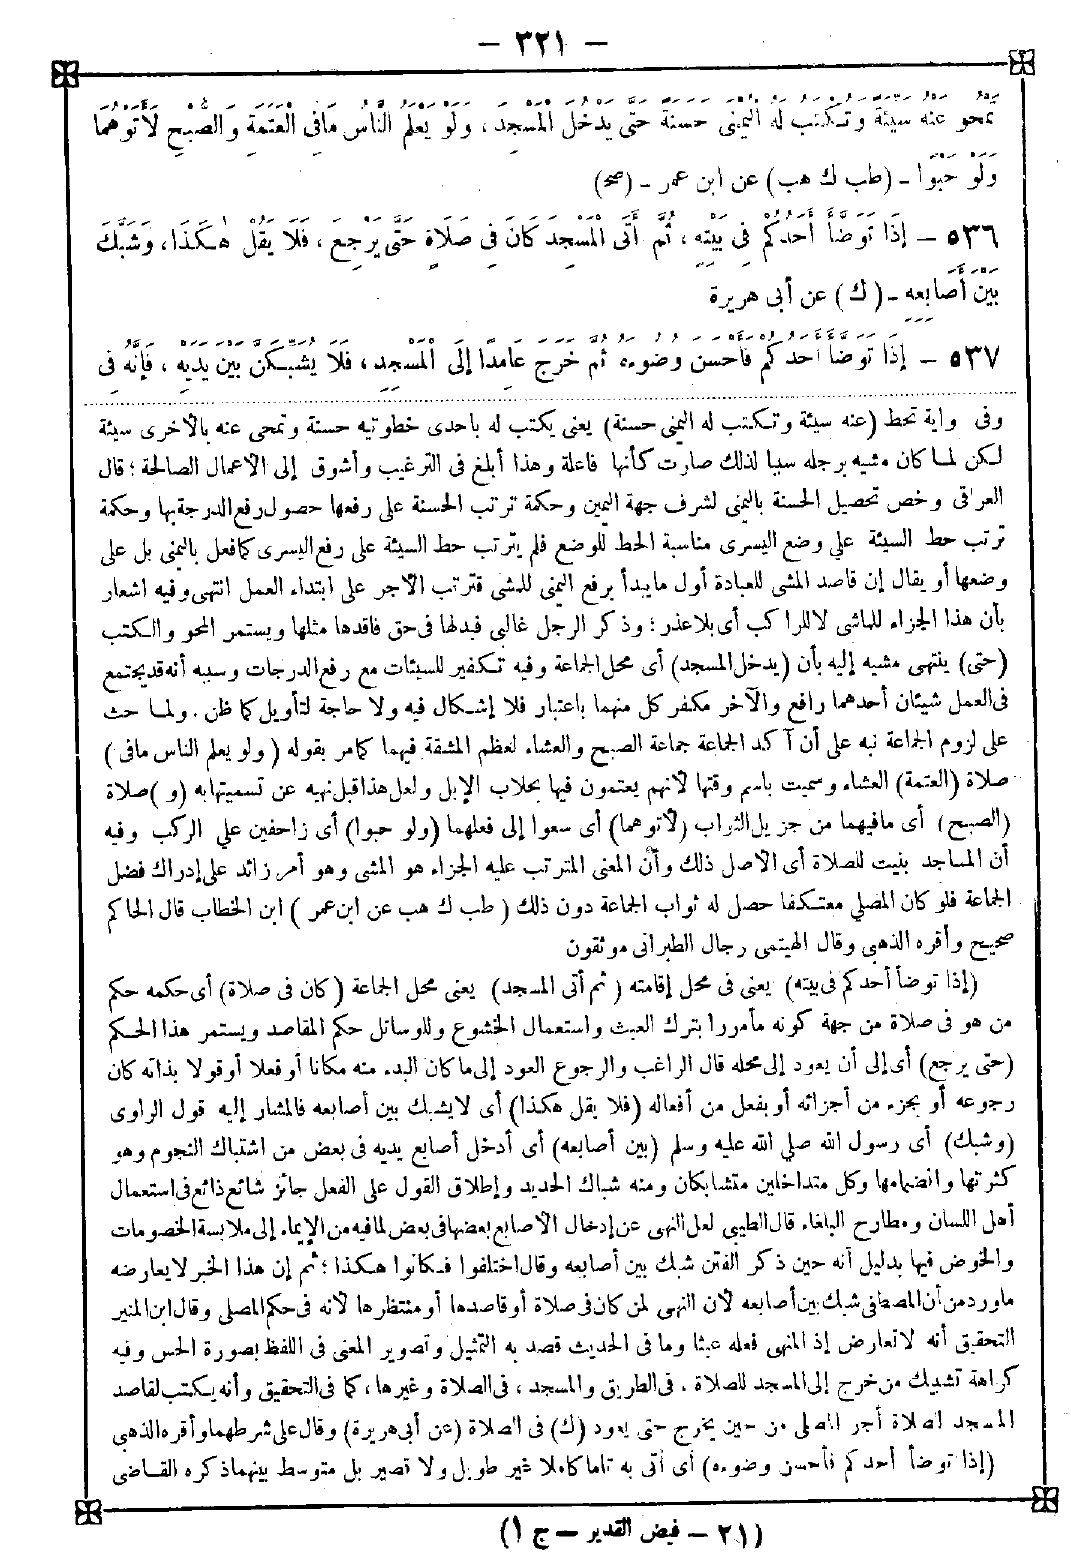 — ٣٢١ —
تمحو عنه سيئة وتكتب له اليمنى حسنة حتى يدخل المسجد ، ولو يعلم الناس ما في العتمة والصبح لأتوهما
ولو حبوا - (طب ك هب) عن ابن عمر - (صح)
٥٣٦ - إذا توضأ أحدكم في بيته ، ثم أتى المسجد كان في صلاة حتى يرجع ، فلا يقل هكذا ، وشبك
بين أصابعه - (ك) عن أبي هريرة
٥٣٧ - إذا توضأ أحدكم فأحسن وضوءه ثم خرج عامدا إلى المسجد ، فلا يشبكن بين يديه ، فإنه في
وفى واية تحط (عنه سيئة وتكتب له اليمنى حسنة) يعنى يكتب له باحدى خطوتيه حسنة وتمحى عنه بالأخرى سيئة
لكن لما كان مشيه برجله سببا لذلك صارت كأنها فاعلة وهذا أبلغ فى الترغيب وأشوق إلى الأعمال الصالحة ؛ قال
العراقى وخص تحصيل الحسنة باليمنى لشرف جهة اليمين وحكمة ترتب الحسنة على رفعها حصول رفع الدرجة بها وحكمة
ترتب حط السيئة على وضع اليسرى مناسبة الحط للوضع فلم يترتب حط السيئة على رفع اليسرى كما فعل باليمنى بل على
وضعها أو يقال إن قاصد المشى للعبادة أول ما يبدأ برفع اليمنى للمشى فترتب الأجر على ابتداء العمل انتهى وفيه اشعار
بأن هذا الجزاء للماشى لا للراكب أى بلا عذر ؛ وذكر الرجل غالبى فبدلها فى حق فاقدها مثلها ويستمر المحو والكتب
(حتى) ينتهى مشيه إليه بأن (يدخل المسجد) أى محل الجماعة وفيه تكفير للسيئات مع رفع الدرجات وسببه أنه قد يجتمع
فى العمل شيئان أحدهما رافع والآخر مكفر كل منهما باعتبار فلا إشكال فيه ولا حاجة لتأويل كما ظن . ولما حث
على لزوم الجماعة نبه على أن آكد الجماعة جماعة الصبح والعشاء لعظم المشقة فيهما كما مر بقوله (ولو يعلم الناس ما فى)
صلاة (العتمة) العشاء وسميت باسم وقتها لأنهم يعتمون فيها بحلاب الإبل ولعل هذا قبل نهيه عن تسميتها به (و) صلاة
(الصبح) أى ما فيهما من جزيل الثراب (لأتوهما) أى سعوا إلى فعلهما (ولو حبوا) أى زاحفين على الركب وفيه
أن المساجد بنيت للصلاة أى الأصل ذلك وأن المعنى المترتب عليه الجزاء هو المشى وهو أمر زائد على إدراك فضل
الجماعة فلو كان المصلى معتكفا حصل له ثواب الجماعة دون ذلك (طب ك هب عن ابن عمر) ابن الخطاب قال الحاكم
صحيح وأقره الذهبى وقال الهيتمى رجال الطبرانى موثقون
(إذا توضأ أحدكم فى بيته) يعنى فى محل إقامته (ثم أتى المسجد) يعنى محل الجماعة (كان فى صلاة) أى حكمه حكم
من هو فى صلاة من جهة كونه مأمورا بترك العبث واستعمال الخشوع وللوسائل حكم المقاصد ويستمر هذا الحكم
(حتى يرجع) أى إلى أن يعود إلى محله قال الراغب والرجوع العود إلى ما كان البدء منه مكانا أو فعلا أو قولا بذاته كان
رجوعه أو بجزء من أجزائه أو بفعل من أفعاله (فلا يقل هكذا) أى لا يشبك بين أصابعه فالمشار إليه قول الراوى
(وشبك) أى رسول الله صلى الله عليه وسلم (بين أصابعه) أى أدخل أصابع يديه فى بعض من اشتباك النجوم وهو
كثرتها وانضمامها وكل متداخلين متشابكان ومنه شباك الحديد وإطلاق القول على الفعل جائز شائع ذائع فى استعمال
أهل اللسان ومطارح البلغاء قال الطيبى لعل النهى عن إدخال الأصابع بعضها فى بعض لما فيه من الإيماء إلى ملابسة الخصومات
والخوض فيها بدليل أنه حين ذكر الفتن شبك بين أصابعه وقال اختلفوا فكانوا هكذا ؛ ثم إن هذا الخبر لا يعارضه
ما ورد من أن المصطفى شبك بين أصابعه لأن النهى لمن كان فى صلاة أو قاصدها أو منتظرها لأنه فى حكم المصلى وقال ابن المنير
التحقيق أنه لا تعارض إذ المنهى فعله عبثا وما فى الحديث قصد به التمثيل وتصوير المعنى فى اللفظ بصورة الحس وفيه
كراهة تشبيك من خرج إلى المسجد للصلاة ، فى الطريق والمسجد ، فى الصلاة وغيرها ، كما فى التحقيق وأنه يكتب لقاصد
المسجد لصلاة أجر المصلى من حين يخرج حتى يعود (ك) فى الصلاة (عن أبى هريرة) وقال على شرطهما وأقره الذهبى
(إذا توضأ أحدكم فأحسن وضوءه) أى أتى به تاما كاملا غير طويل ولا قصير بل متوسط بينهما ذكره القاضى
(٢١ - فيض القدير - ج ١)